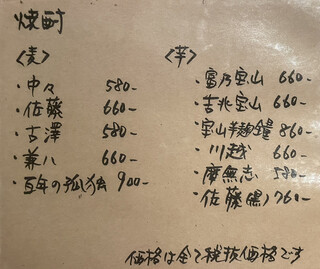 焼酎
〈麦〉
・中々 580-
・佐藤 660-
・吉澤 580-
・兼八 660-
・百年の孤独 900-
〈芋〉
・富乃宝山 660-
・吉兆宝山 660-
・宝山芋麹全量 860-
・川越 660-
・摩無志 580-
・佐藤(黒) 760-
価格は全て税抜価格です